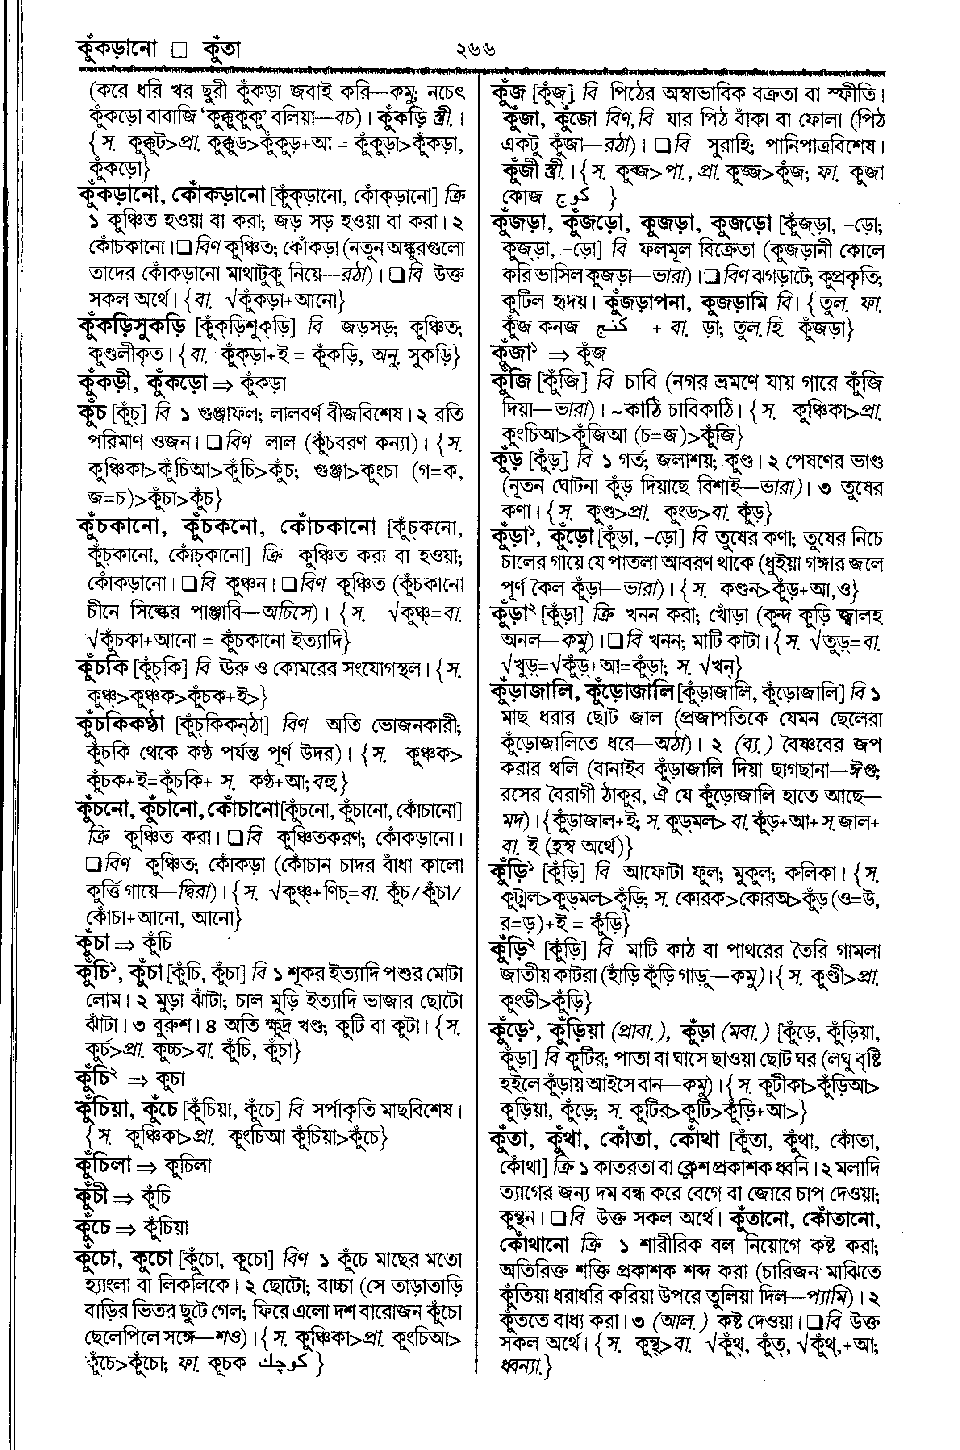 কুঁকড়ানো □ কুঁতা
২৬৬
(করে ধরি খর ছুরী কুঁকড়া জবাই করি—কমু; নচেৎ
কুঁকড়ো বাবাজি 'কুক্কুকুকু' বলিয়া—বচ)। কুঁকড়ি স্ত্রী.।
{স. কুক্কুট>প্রা. কুক্কুড>কুঁকুড়+আ: = কুঁকুড়া>কুঁকড়া,
কুঁকড়ো}
কুঁকড়ানো, কোঁকড়ানো [কুঁক্‌ড়ানো, কোঁক্‌ড়ানো] ক্রি
১ কুঞ্চিত হওয়া বা করা; জড় সড় হওয়া বা করা। ২
কোঁচকানো। ❏বিণ কুঞ্চিত; কোঁকড়া (নতুন অঙ্কুরগুলো
তাদের কোঁকড়ানো মাথাটুকু নিয়ে—রঠা)। ❏বি উক্ত
সকল অর্থে। {বা. √কুঁকড়া+আনো}
কুঁকড়িসুকড়ি [কুঁক্‌ড়িশুক্‌ড়ি] বি জড়সড়; কুঞ্চিত;
কুণ্ডলীকৃত। {বা. কুঁকড়া+ই = কুঁকড়ি, অনু. সুকড়ি}
কুঁকড়ী, কুঁকড়ো ⇒ কুঁকড়া
কুঁচ [কুঁচ্] বি ১ গুঞ্জাফল; লালবর্ণ বীজবিশেষ। ২ রতি
পরিমাণ ওজন। ❏বিণ লাল (কুঁচবরণ কন্যা)। {স.
কুঞ্চিকা>কুঁচিআ>কুঁচি>কুঁচ; গুঞ্জা>কুংচা (গ=ক,
জ=চ)>কুঁচা>কুঁচ}
কুঁচকানো, কুঁচকনো, কোঁচকানো [কুঁচ্‌কনো,
কুঁচ্‌কানো, কোঁচ্‌কানো] ক্রি কুঞ্চিত করা বা হওয়া;
কোঁকড়ানো। ❏বি কুঞ্চন। ❏বিণ কুঞ্চিত (কুঁচকানো
চীনে সিল্কের পাঞ্জাবি—অচিসে)। {স. √কুঞ্চ্=বা.
√কুঁচকা+আনো = কুঁচকানো ইত্যাদি}
কুঁচকি [কুঁচ্‌কি] বি ঊরু ও কোমরের সংযোগস্থল। {স.
কুঞ্চ>কুঞ্চক>কুঁচক+ই>}
কুঁচকিকণ্ঠা [কুঁচ্‌কিকন্‌ঠা] বিণ অতি ভোজনকারী;
কুঁচকি থেকে কণ্ঠ পর্যন্ত পূর্ণ উদর)। {স. কুঞ্চক>
কুঁচক+ই=কুঁচকি+ স. কণ্ঠ+আ; বহু}
কুঁচনো, কুঁচানো, কোঁচানো[কুঁচ্‌নো, কুঁচানো, কোঁচানো]
ক্রি কুঞ্চিত করা। ❏বি কুঞ্চিতকরণ; কোঁকড়ানো।
❏বিণ কুঞ্চিত; কোঁকড়া (কোঁচান চাদর বাঁধা কালো
কুর্ত্তি গায়ে—দ্বিরা)। {স. √কুঞ্চ্+ণিচ্=বা. কুঁচ/কুঁচা/
কোঁচা+আনো, আনো}
কুঁচা ⇒ কুঁচি
কুঁচি১, কুঁচা [কুঁচি, কুঁচা] বি ১ শূকর ইত্যাদি পশুর মোটা
লোম। ২ মুড়া ঝাঁটা; চাল মুড়ি ইত্যাদি ভাজার ছোটো
ঝাঁটা। ৩ বুরুশ। ৪ অতি ক্ষুদ্র খণ্ড; কুটি বা কুটা। {স.
কূর্চ>প্রা. কুচ্চ>বা. কুঁচি, কুঁচা}
কুঁচি২ ⇒ কুচা
কুঁচিয়া, কুঁচে [কুঁচিয়া, কুঁচে] বি সর্পাকৃতি মাছবিশেষ।
{স. কুঞ্চিকা>প্রা. কুংচিআ কুঁচিয়া>কুঁচে}
কুঁচিলা ⇒ কুচিলা
কুঁচী ⇒ কুঁচি
কুঁচে ⇒ কুঁচিয়া
কুঁচো, কুচো [কুঁচো, কুচো] বিণ ১ কুঁচে মাছের মতো
হ্যাংলা বা লিকলিকে। ২ ছোটো; বাচ্চা (সে তাড়াতাড়ি
বাড়ির ভিতর ছুটে গেল; ফিরে এলো দশ বারোজন কুঁচো
ছেলেপিলে সঙ্গে—শও)। {স. কুঞ্চিকা>প্রা. কুংচিআ>
কুঁচে>কুঁচো; ফা. কূচক كوچك}
কুঁজ [কুঁজ্] বি পিঠের অস্বাভাবিক বক্রতা বা স্ফীতি।
কুঁজা, কুঁজো বিণ,বি যার পিঠ বাঁকা বা ফোলা (পিঠ
একটু কুঁজা—রঠা)। ❏বি সুরাহি; পানিপাত্রবিশেষ।
কুঁজী স্ত্রী.। {স. কুব্জ>পা., প্রা. কুজ্জ>কুঁজ; ফা. কুজা
কোজ كوج }
কুঁজড়া, কুঁজড়ো, কুজড়া, কুজড়ো [কুঁজ্‌ড়া, –ড়ো;
কুজ্‌ড়া, –ড়ো] বি ফলমূল বিক্রেতা (কুজড়ানী কোলে
করি ভাসিল কুজড়া—ভারা)। ❏বিণ ঝগড়াটে; কুপ্রকৃতি;
কুটিল হৃদয়। কুঁজড়াপনা, কুজড়ামি বি। {তুল. ফা.
কুঁজ কনজ كنج + বা. ড়া; তুল.হি. কুঁজড়া}
কুঁজা১ ⇒ কুঁজ
কুঁজি [কুঁজি] বি চাবি (নগর ভ্রমণে যায় গারে কুঁজি
দিয়া—ভারা)। ~কাঠি চাবিকাঠি। {স. কুঞ্চিকা>প্রা.
কুংচিআ>কুঁজিআ (চ=জ)>কুঁজি}
কুঁড় [কুঁড়্] বি ১ গর্ত; জলাশয়; কুণ্ড। ২ পেষণের ভাণ্ড
(নূতন ঘোটনা কুঁড় দিয়াছে বিশাই—ভারা)। ৩ তুষের
কণা। {স. কুণ্ড>প্রা. কুংড>বা. কুঁড়}
কুঁড়া১, কুঁড়ো [কুঁড়া, –ড়ো] বি তুষের কণা; তুষের নিচে
চালের গায়ে যে পাতলা আবরণ থাকে (ধুইয়া গঙ্গার জলে
পূর্ণ কৈল কুঁড়া—ভারা)। {স. কণ্ডন>কুঁড়+আ,ও}
কুঁড়া২ [কুঁড়া] ক্রি খনন করা; খোঁড়া (কুন্দ কুড়ি জ্বালহ
অনল—কমু)। ❏বি খনন; মাটি কাটা। {স. √তুড়্=বা.
√খুড়্=√কুঁড়্। আ=কুঁড়া; স. √খন্}
কুঁড়াজালি, কুঁড়োজালি [কুঁড়াজালি, কুঁড়োজালি] বি ১
মাছ ধরার ছোট জাল (প্রজাপতিকে যেমন ছেলেরা
কুঁড়োজালিতে ধরে—অঠা)। ২ (ব্য.) বৈষ্ণবের জপ
করার থলি (বানাইব কুঁড়াজালি দিয়া ছাগছানা—ঈগু;
রসের বৈরাগী ঠাকুর, ঐ যে কুঁড়োজালি হাতে আছে—
মদ)। {কুঁড়াজাল+ই; স. কুড়মল> বা. কুঁড়+আ+ স. জাল+
বা. ই (হ্রস্ব অর্থে)}
কুঁড়ি১ [কুঁড়ি] বি আফোটা ফুল; মুকুল; কলিকা। {স.
কুট্মল>কুড়মল>কুঁড়ি; স. কোরক>কোরঅ>কুঁড় (ও=উ,
র=ড়)+ই = কুঁড়ি}
কুঁড়ি২ [কুঁড়ি] বি মাটি কাঠ বা পাথরের তৈরি গামলা
জাতীয় কাটরা (হাঁড়ি কুঁড়ি গাড়ু—কমু)। {স. কুণ্ডী>প্রা.
কুংডী>কুঁড়ি}
কুঁড়ে১, কুঁড়িয়া (প্রাবা.), কুঁড়া (মবা.) [কুঁড়ে, কুঁড়িয়া,
কুঁড়া] বি কুটির; পাতা বা ঘাসে ছাওয়া ছোট ঘর (লঘু বৃষ্টি
হইলে কুঁড়ায় আইসে বান—কমু)। {স. কুটীকা>কুঁড়িআ>
কুড়িয়া, কুঁড়ে; স. কুটির>কুটি>কুঁড়ি+আ>}
কুঁতা, কুঁথা, কোঁতা, কোঁথা [কুঁতা, কুঁথা, কোঁতা,
কোঁথা] ক্রি ১ কাতরতা বা ক্লেশ প্রকাশক ধ্বনি। ২ মলাদি
ত্যাগের জন্য দম বন্ধ করে বেগে বা জোরে চাপ দেওয়া;
কুন্থন। ❏বি উক্ত সকল অর্থে। কুঁতানো, কোঁতানো,
কোঁথানো ক্রি ১ শারীরিক বল নিয়োগে কষ্ট করা;
অতিরিক্ত শক্তি প্রকাশক শব্দ করা (চারিজন মাঝিতে
কুঁতিয়া ধরাধরি করিয়া উপরে তুলিয়া দিল—প্যামি)। ২
কুঁততে বাধ্য করা। ৩ (আল.) কষ্ট দেওয়া। ❏বি উক্ত
সকল অর্থে। {স. কুন্থ>বা. √কুঁথ্, কুঁত্, √কুঁথ্,+আ;
ধ্বন্যা.}